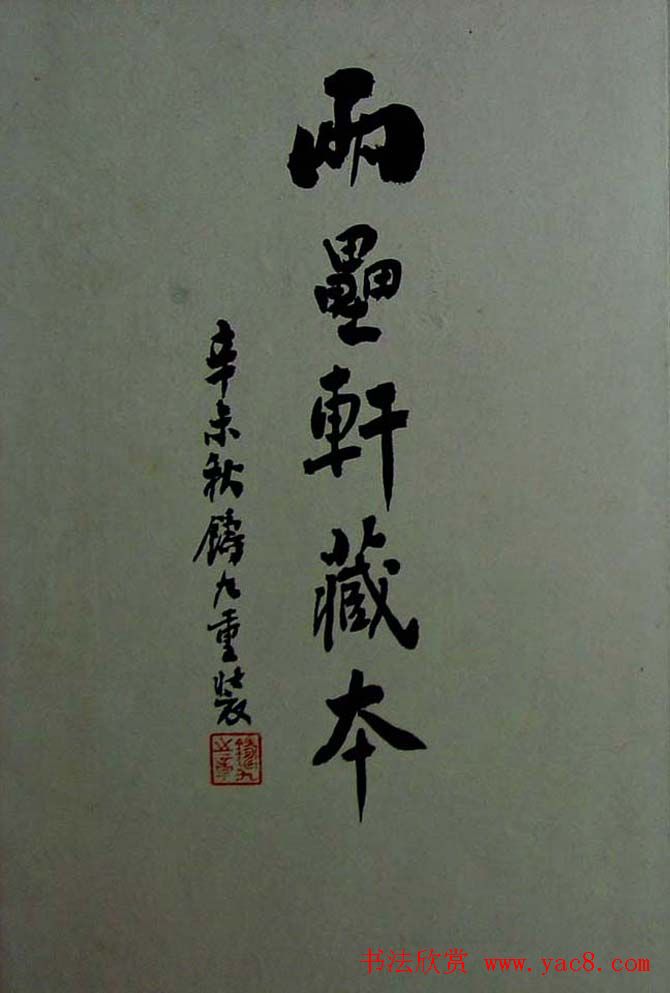 兩罍軒藏本
辛未秋鑄九重裝
書法欣赏 www.yac8.com